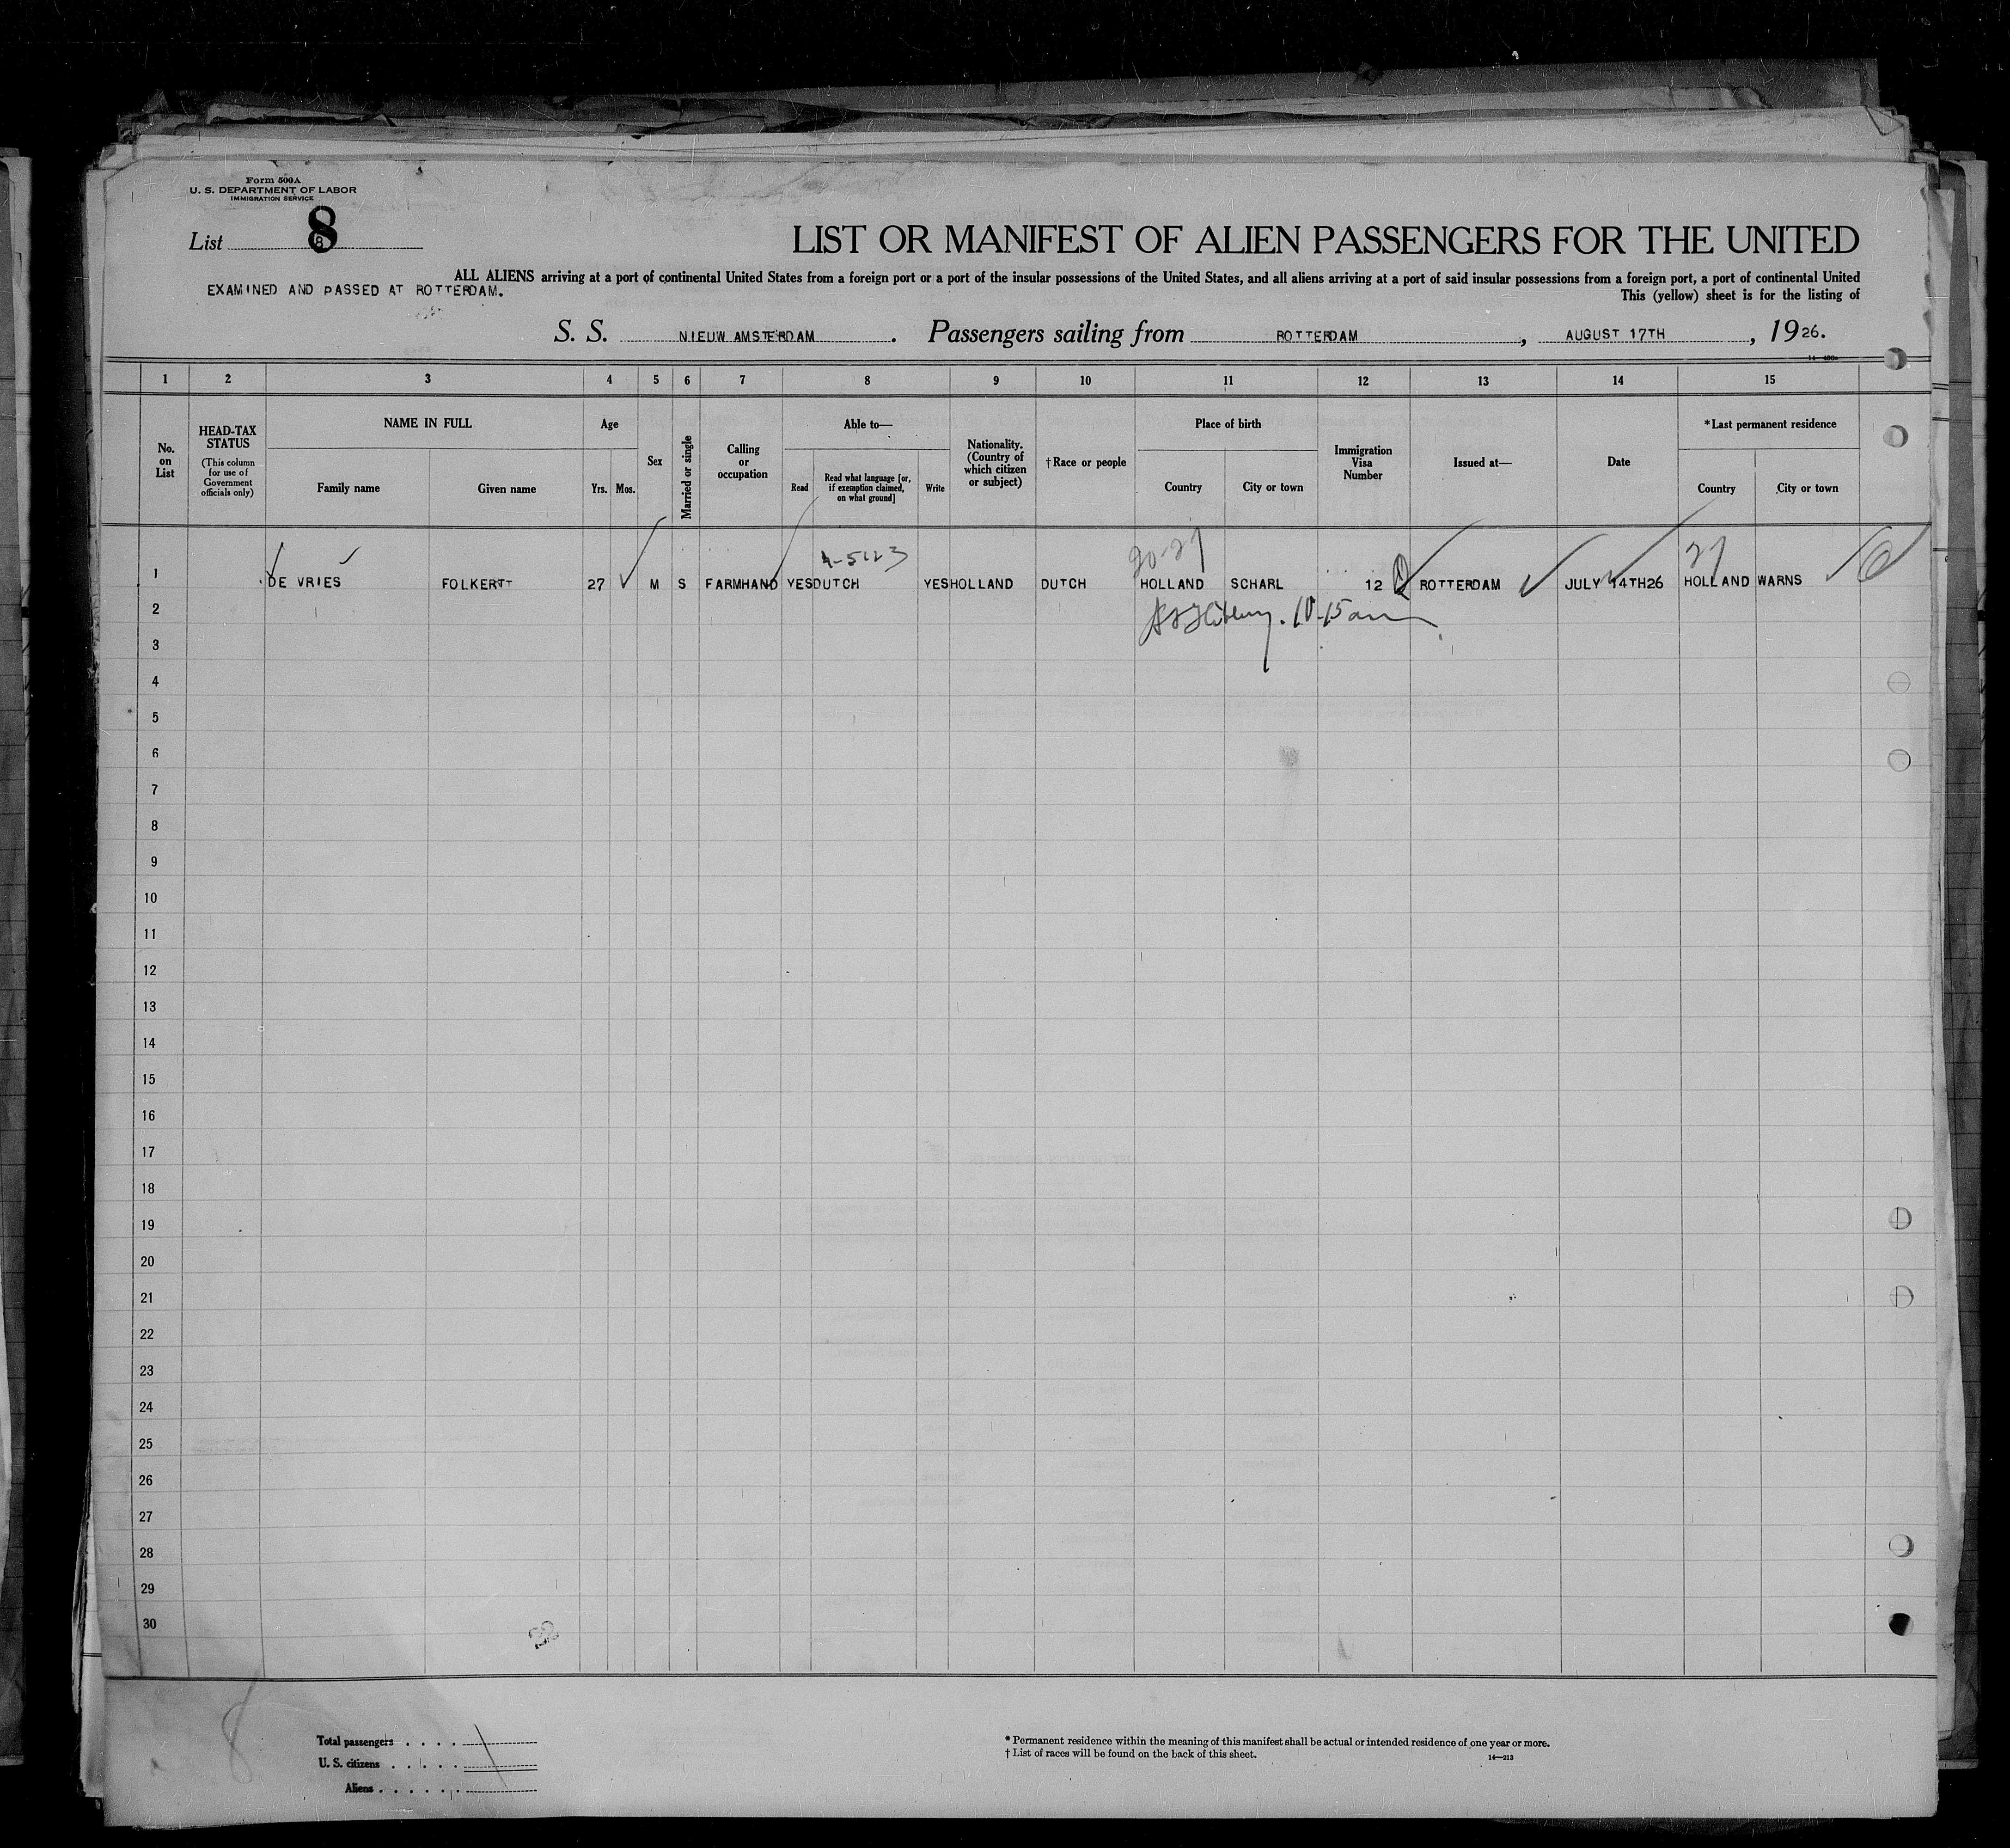 Form 500A
U. S. DEPARTMENT OF LABOR
IMMIGRATION SERVICE
List 8
8
LIST OR MANIFEST OF ALIEN PASSENGERS FOR THE UNITED
ALL ALIENS arriving at a port of continental United States from a foreign port or a port of the insular possessions of the United States, and all aliens arriving at a port of said insular possessions from a foreign port, a port of continental United
EXAMINED AND PASSED AT ROTTERDAM.
This (yellow) sheet is for the listing of
S. S. NIEUW AMSTERDAM. Passengers sailing from ROTTERDAM, AUGUST 17TH, 1926.
1 2 3 4 5 6 7 8 9 10 11 12 13 14 15
No. on List
HEAD-TAX STATUS
(This column for use of Government officials only)
NAME IN FULL
Family name Given name
Age
Yrs. Mos.
Sex
Married or single
Calling or occupation
Able to—
Read
Read what language [or, if exemption claimed, on what ground]
Write
Nationality. (Country of which citizen or subject)
† Race or people
Place of birth
Country City or town
Immigration Visa Number
Issued at—
Date
* Last permanent residence
Country City or town
20-27 27
1 DE VRIES FOLKERT 27 M S FARMHAND YES DUTCH YES HOLLAND DUTCH HOLLAND SCHARL 12 ROTTERDAM JULY 14TH26 HOLLAND WARNS
10-15 am
2
3
4
5
6
7
8
9
10
11
12
13
14
15
16
17
18
19
20
21
22
23
24
25
26
27
28
29
30
8
Total passengers
U. S. citizens
Aliens
* Permanent residence within the meaning of this manifest shall be actual or intended residence of one year or more.
† List of races will be found on the back of this sheet.
14—213